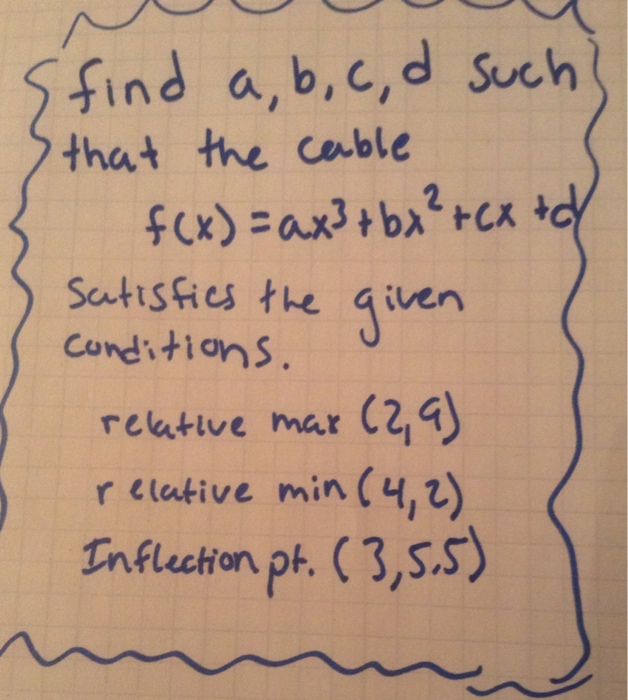 find a, b, c, d such
that the cable
f(x) = ax³ + bx² + cx + d
satisfies the given
conditions.
relative max (2,9)
relative min (4,2)
Inflection pt. (3,5.5)